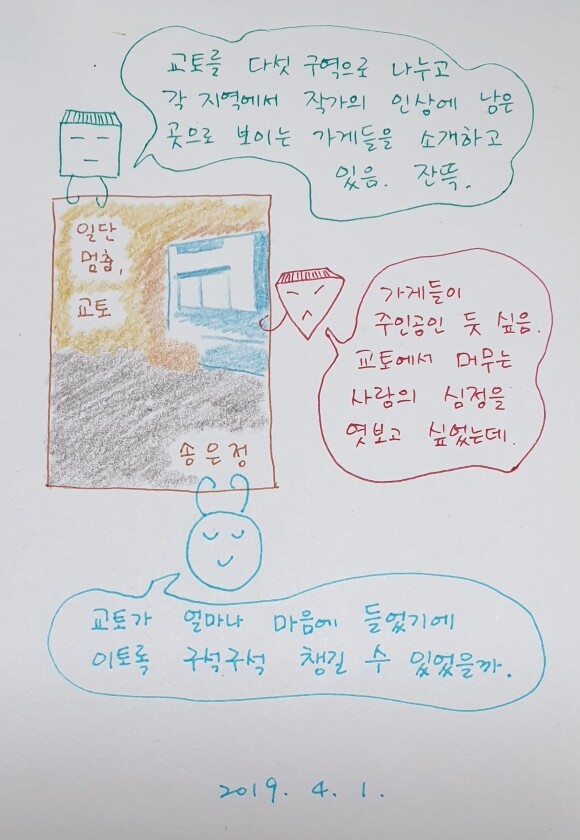 교토를 다섯 구역으로 나누고
각 지역에서 작가의 인상에 남은
곳으로 보이는 가게들을 소개하고
있음. 잔뜩.
일단
멈춤,
교토
송은정
가게들이
주인공인 듯 싶음.
교토에서 머무는
사람의 심정을
엿보고 싶었는데.
교토가 얼마나 마음에 들었기에
이토록 구석구석 챙길 수 있었을까.
2019. 4. 1.